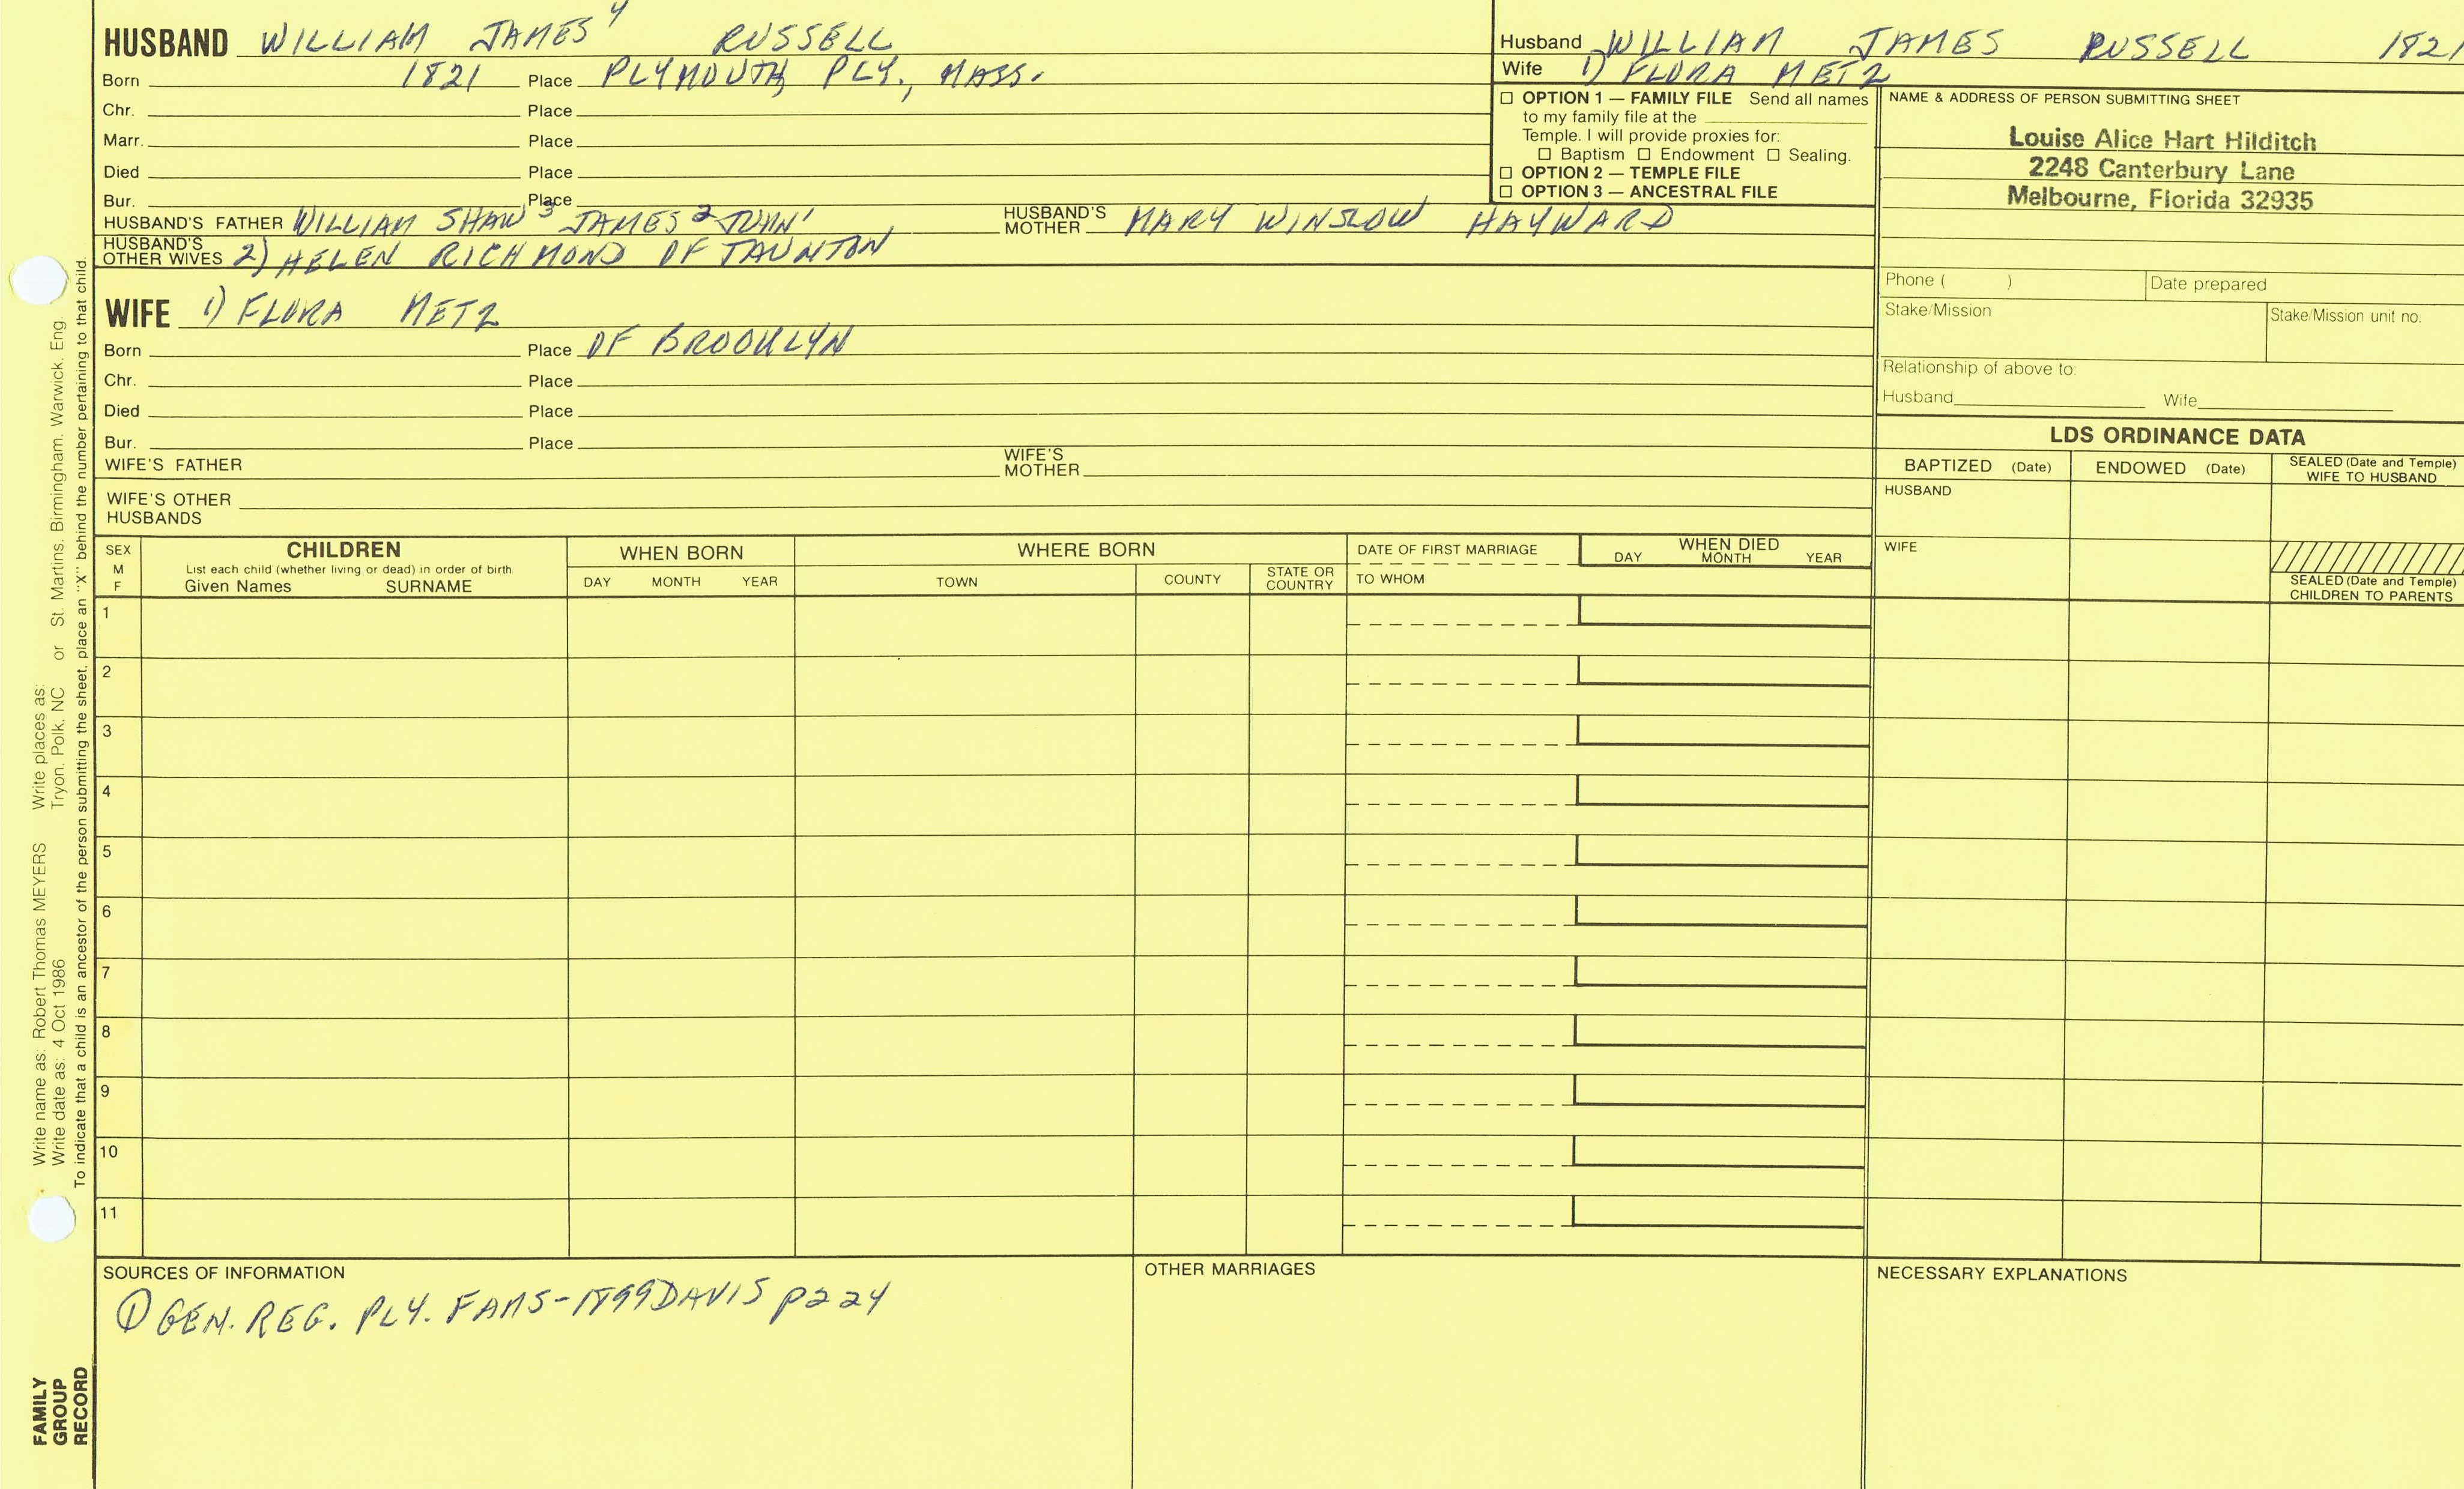 HUSBAND WILLIAM JAMES⁴ RUSSELL
Born 1821 Place PLYMOUTH, PLY., MASS.
Chr. Place
Marr. Place
Died Place
Bur. Place
HUSBAND'S FATHER WILLIAM SHAW³ JAMES² JOHN¹ HUSBAND'S MOTHER MARY WINSLOW HAYWARD
HUSBAND'S OTHER WIVES 2) HELEN RICHMOND OF TAUNTON
WIFE 1) FLORA METZ
Born Place OF BROOKLYN
Chr. Place
Died Place
Bur. Place
WIFE'S FATHER WIFE'S MOTHER
WIFE'S OTHER HUSBANDS
Husband WILLIAM JAMES RUSSELL 1821
Wife 1) FLORA METZ
☐ OPTION 1 — FAMILY FILE Send all names
to my family file at the
Temple. I will provide proxies for:
☐ Baptism ☐ Endowment ☐ Sealing.
☐ OPTION 2 — TEMPLE FILE
☐ OPTION 3 — ANCESTRAL FILE
NAME & ADDRESS OF PERSON SUBMITTING SHEET
Louise Alice Hart Hilditch
2248 Canterbury Lane
Melbourne, Florida 32935
Phone ( ) Date prepared
Stake/Mission Stake/Mission unit no.
Relationship of above to:
Husband Wife
LDS ORDINANCE DATA
BAPTIZED (Date) ENDOWED (Date) SEALED (Date and Temple) WIFE TO HUSBAND
HUSBAND
WIFE
SEALED (Date and Temple)
CHILDREN TO PARENTS
SEX M F
CHILDREN
List each child (whether living or dead) in order of birth
Given Names SURNAME
WHEN BORN
DAY MONTH YEAR
WHERE BORN
TOWN COUNTY STATE OR COUNTRY
DATE OF FIRST MARRIAGE
TO WHOM
WHEN DIED
DAY MONTH YEAR
1
2
3
4
5
6
7
8
9
10
11
SOURCES OF INFORMATION
① GEN. REG. PLY. FAMS-1899 DAVIS P224
OTHER MARRIAGES
NECESSARY EXPLANATIONS
Write name as: Robert Thomas MEYERS Write places as:
Write date as: 4 Oct 1986 Tryon, Polk, NC or St. Martins, Birmingham, Warwick, Eng.
To indicate that a child is an ancestor of the person submitting the sheet, place an "X" behind the number pertaining to that child.
FAMILY
GROUP
RECORD